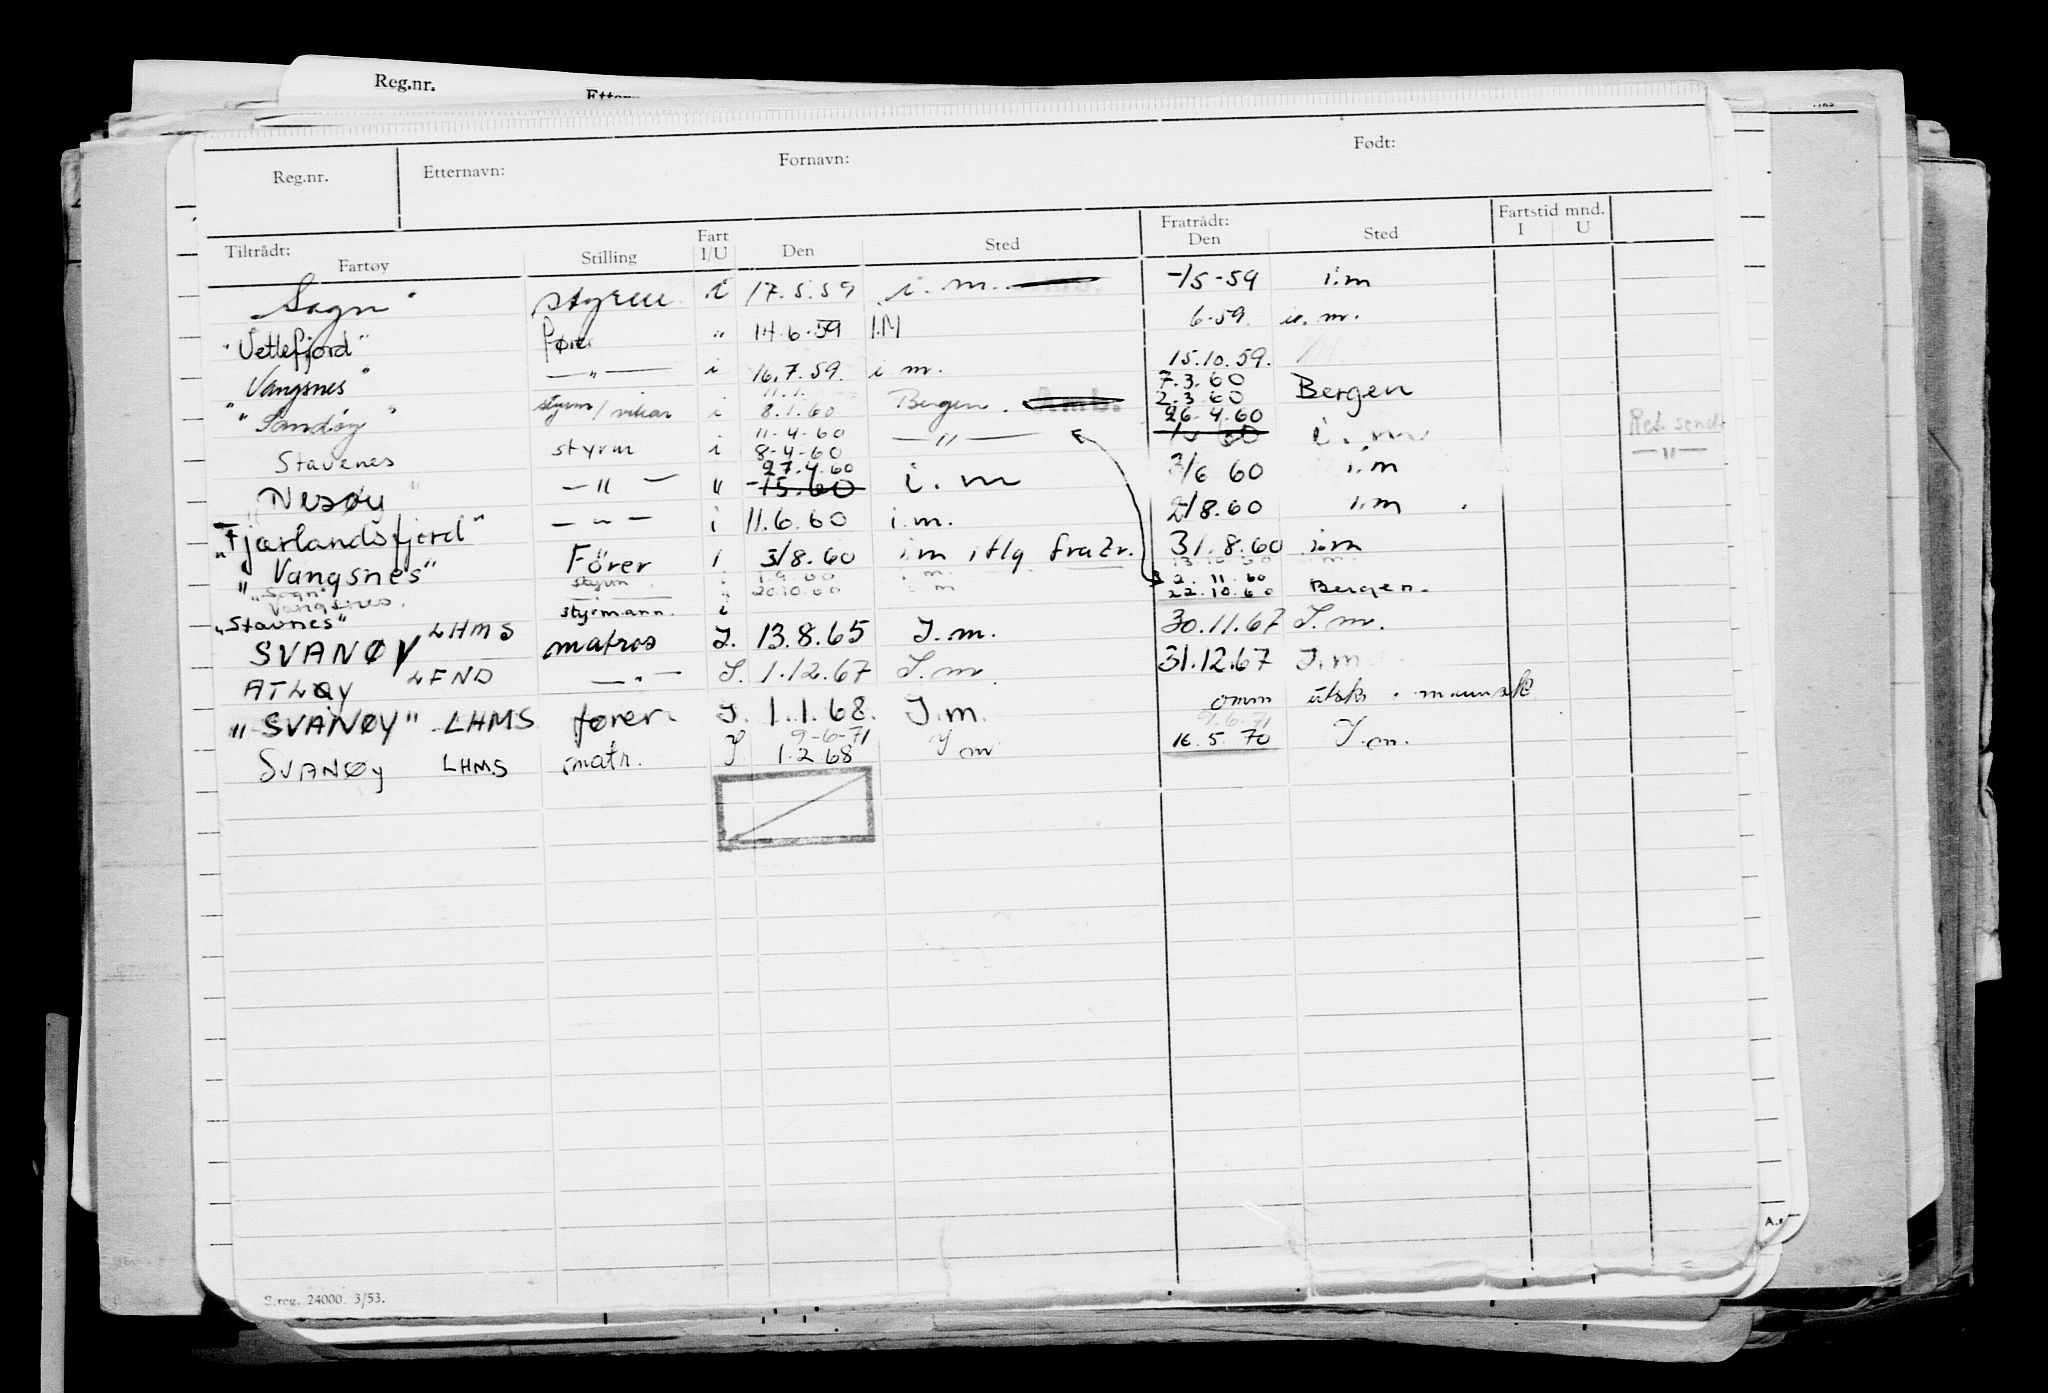 Reg.nr.
Reg.nr. Etternavn: Fornavn: Født:
Tiltrådt: Fartøy Stilling Fart I/U Den Sted Fratrådt: Den Sted Fartstid mnd. I U
Sogn" styrm i 17.5.59 i.m. -/5-59 i.m
"Vetlefjord" fører " 14.6.59 I.M 6-59. i.m.
Vangsnes" —"— i 16.7.59. i m. 15.10.59.
11.1. 7.3.60
"Sandøy" styrm/vikar i 8.1.60 Bergen. 2.3.60 Bergen
11-4-60 26-4.60
Stavenes styrm i 8-4-60 —"— i.m Ret. sendt
27.4.60 —"—
"Nesøy" —"— " -/5.60 i.m 3/6 60 i.m
"Fjærlandsfjord" —"— i 11.6.60 i.m. 2/8.60 i.m
"Vangsnes" Förer i 3/8.60 i m iflg fra Zr. 31.8.60 i.m
"Sogn" styrm i 1.9.60 i m 2.11.60
Vangsnes. —"— " 20.10.60 i m 22.10.60 Bergen.
"Stavnes" styrmann. i
SVANØY LHMS matros I. 13.8.65 I.m. 30.11.67 I.m.
ATLØY LFND —"— I. 1.12.67 I.m. 31.12.67 I.m
"SVANØY" LHMS fører I. 1.1.68. I.m. omm utsk. mannsk
9-6-71 9.6.71
SVANØY LHMS matr. I. 1.2.68 I m 16.5.70 I.m.
S.reg. 24000. 3/53.